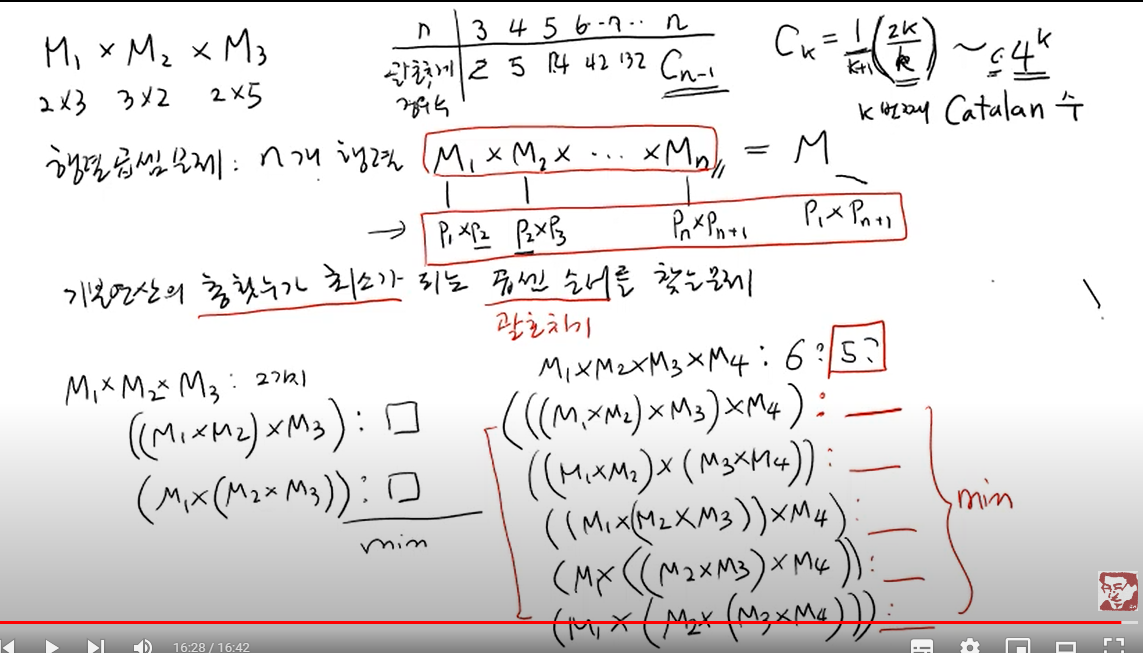 M₁ × M₂ × M₃
2×3 3×2 2×5
n 3 4 5 6 7 ·· n
괄호치기 경우수 2 5 14 42 132 Cₙ₋₁
Cₖ = 1/(k+1) (2k/k) ~ c 4ᵏ
k번째 Catalan 수
행렬곱셈문제: n개 행렬 M₁ × M₂ × ··· × Mₙ = M
→ P₁×P₂ P₂×P₃ Pₙ×Pₙ₊₁ P₁×Pₙ₊₁
기본연산의 총횟수가 최소가 되는 곱셈 순서를 찾는문제
괄호치기
M₁×M₂×M₃ : 2가지
((M₁×M₂)×M₃) : □
(M₁×(M₂×M₃)) : □
min
M₁×M₂×M₃×M₄ : 6? 5?
(((M₁×M₂)×M₃)×M₄) :
((M₁×M₂)×(M₃×M₄)) :
((M₁×(M₂×M₃))×M₄) :
(M×((M₂×M₃)×M₄)) :
(M₁×(M₂×(M₃×M₄))) :
min
16:28 / 16:42